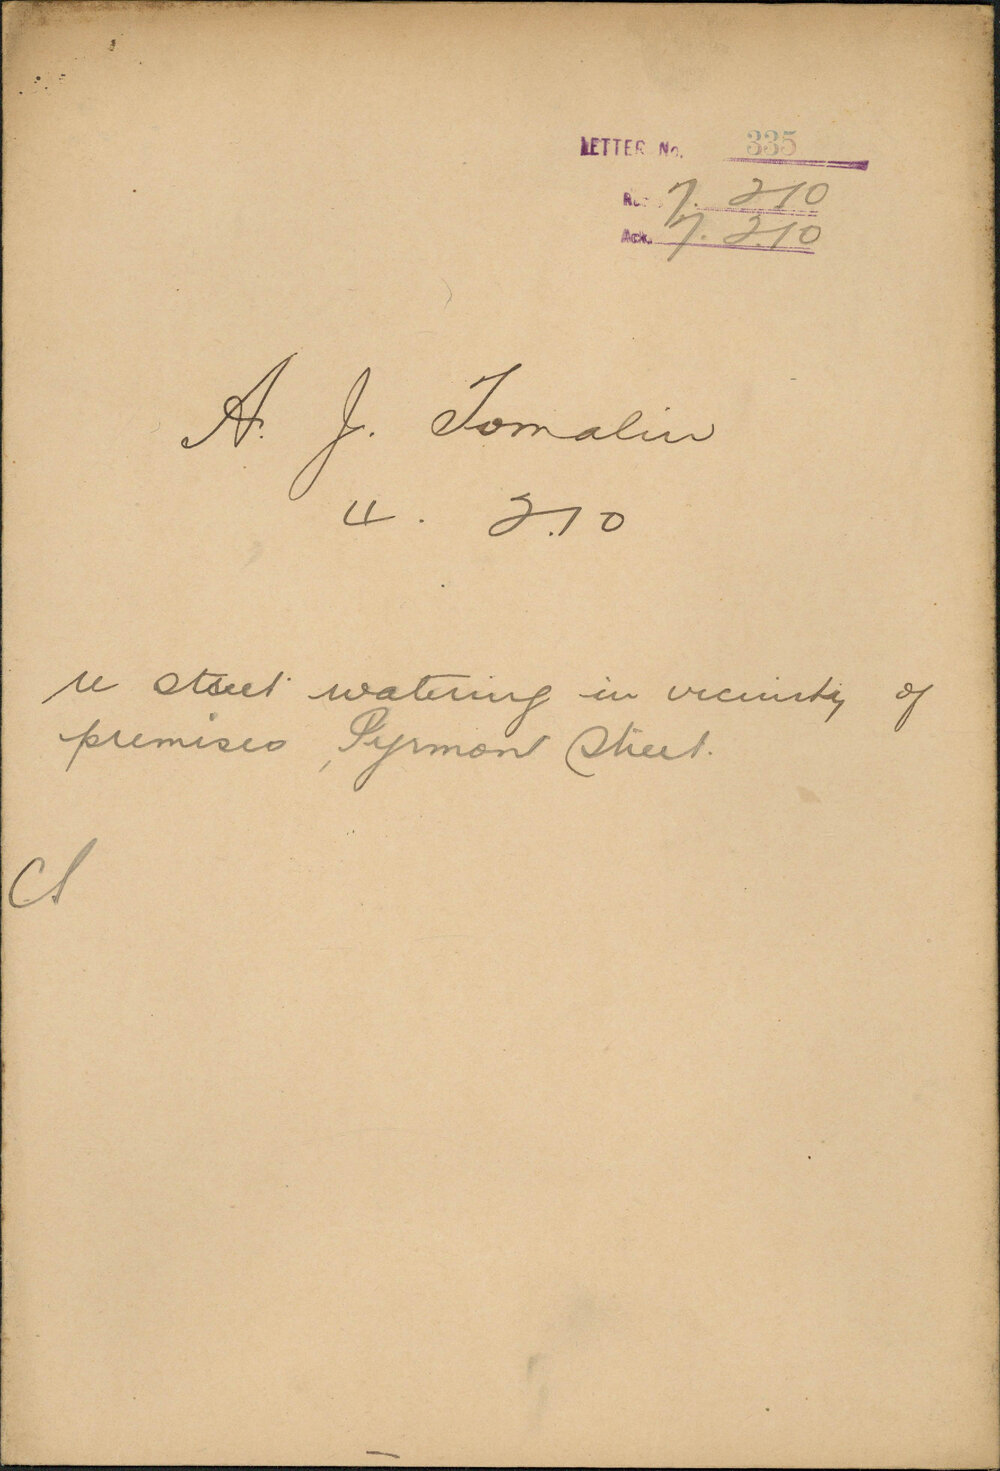 LETTER No. 335
Rec. 7. 2.10
Ack. 7. 2.10
A. J. Tomalin
4. 2.10
re street watering in vicinity of
premises, Pyrmont Street.